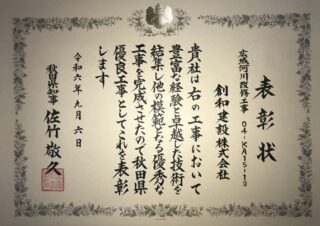 表彰状
広域河川改修工事 04-KA15-10
創和建設株式会社
貴社は右の工事において
豊富な経験と卓越した技術を
結集し他の模範となる優秀な
工事を完成させたので秋田県
優良工事としてこれを表彰
します
令和六年九月六日
秋田県知事 佐竹敬久